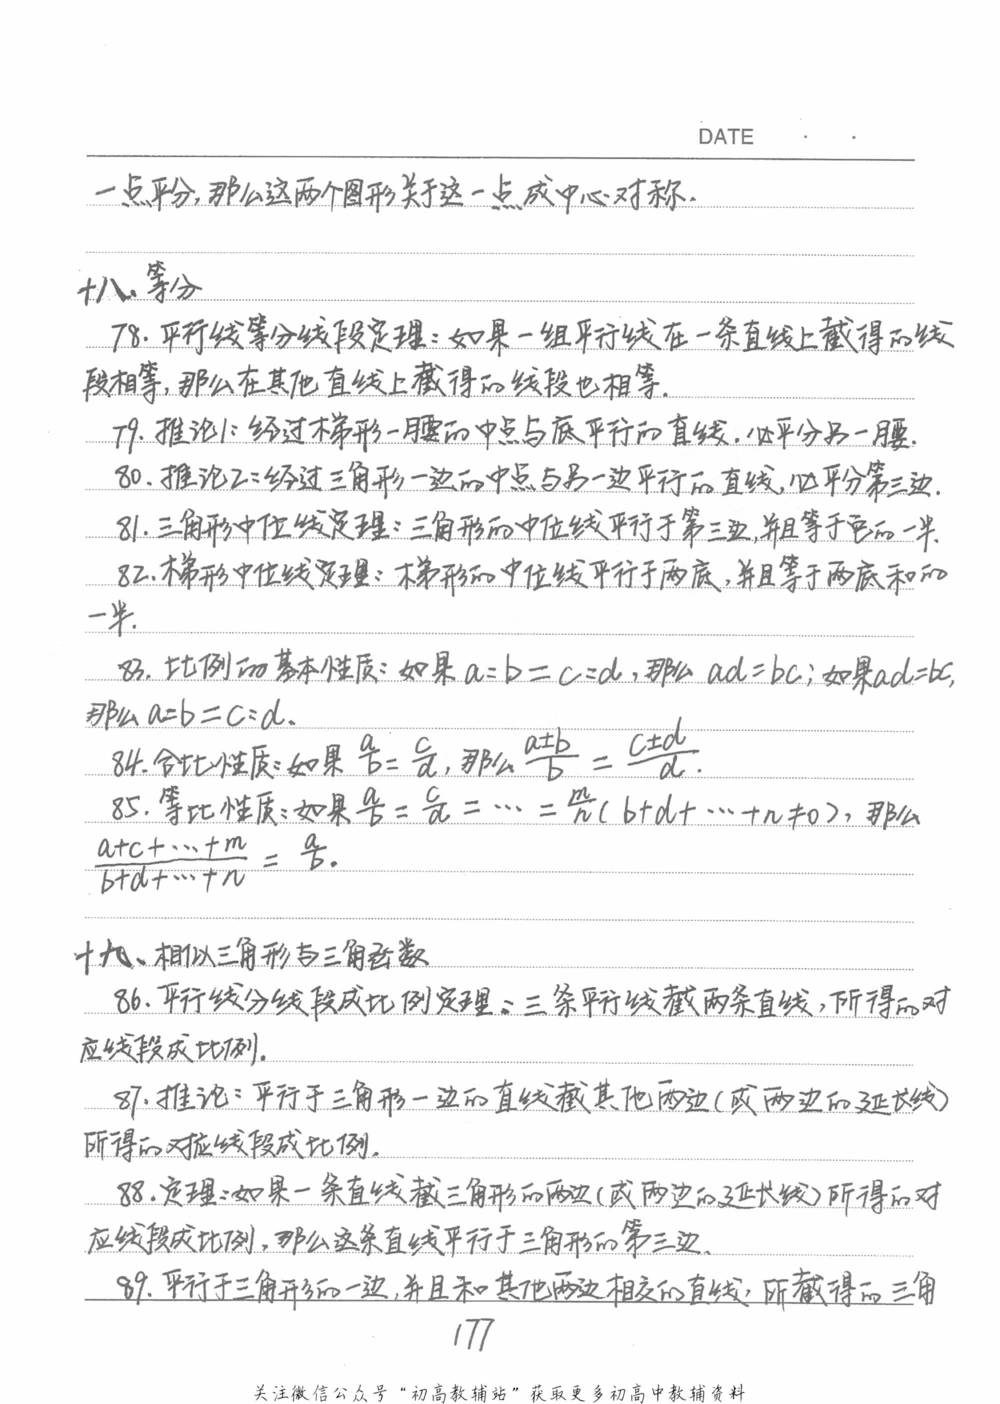 DATE · ·
一点平分,那么这两个图形关于这一点成中心对称.
十八、等分
78.平行线等分线段定理:如果一组平行线在一条直线上截得的线
段相等,那么在其他直线上截得的线段也相等.
79.推论1:经过梯形一腰的中点与底平行的直线.必平分另一腰.
80.推论2:经过三角形一边的中点与另一边平行的直线,必平分第三边.
81.三角形中位线定理:三角形的中位线平行于第三边,并且等于它的一半.
82.梯形中位线定理:梯形的中位线平行于两底,并且等于两底和的
一半.
83.比例的基本性质:如果a=b=c=d,那么ad=bc;如果ad=bc,
那么a=b=c=d.
84.合比性质:如果a/b=c/d,那么(a±b)/b=(c±d)/d.
85.等比性质:如果a/b=c/d=⋯=m/n(b+d+⋯+n≠0),那么
(a+c+⋯+m)/(b+d+⋯+n)=a/b.
十九、相似三角形与三角函数
86.平行线分线段成比例定理:三条平行线截两条直线,所得的对
应线段成比例.
87.推论:平行于三角形一边的直线截其他两边(或两边的延长线)
所得的对应线段成比例.
88.定理:如果一条直线截三角形的两边(或两边的延长线)所得的对
应线段成比例,那么这条直线平行于三角形的第三边.
89.平行于三角形的一边,并且和其他两边相交的直线,所截得的三角
177
关注微信公众号“初高教辅站”获取更多初高中教辅资料